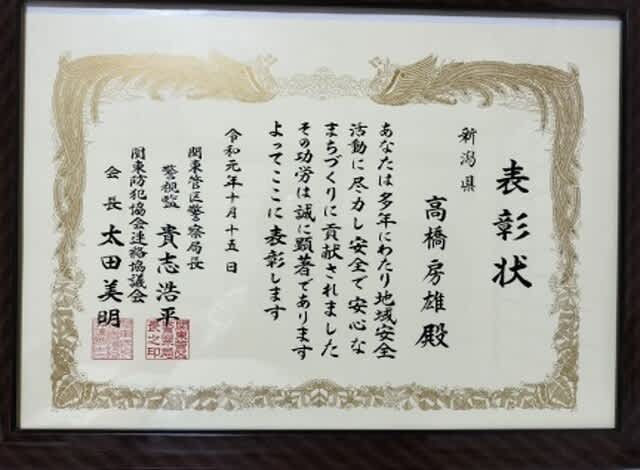 表彰状
新潟県
高橋房雄殿
あなたは多年にわたり地域安全
活動に尽力し安全で安心な
まちづくりに貢献されました
その功労は誠に顕著であります
よってここに表彰します
令和元年十月十五日
関東管区警察局長
警視監 貴志浩平
関東防犯協会連絡協議会
会長 太田美明
関東管区
警察局
長之印